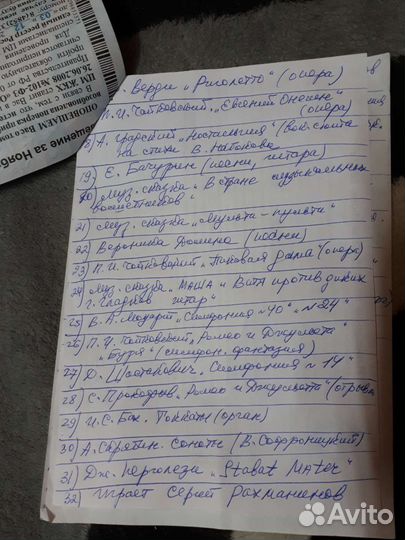 Верди „Риголетто“ (опера)
П. И. Чайковский „Евгений Онегин“
(опера)
18) А. Градский „Ностальгия“ (вок. сюита
на стихи В. Набокова
19) Е. Бачурин (песни, гитара)
20) Муз. сказка „В стране музыкальных
21) Муз. сказка „Мульти-пульти“
22) Вероника Долина (песни)
23) П. И. Чайковский „Пиковая дама“ (опера)
24) Муз. сказка „Маша и Витя против диких
г. Гладков гитар“
25) В. А. Моцарт „Симфония №40“ „№24“
26) П. И. Чайковский „Ромео и Джульета“
„Буря“ (симфон. фантазия)
27) Д. Шостакович „Симфония №14“
28) С. Прокофьев „Ромео и Джульетта“ (отрыв
29) И. С. Бах. Токкаты (орган)
30) А. Скрябин. Сонаты (В. Софроницкий)
31) Дж. Перголези „Stabat Mater“
32) Играет Сергей Рахманинов
Avito